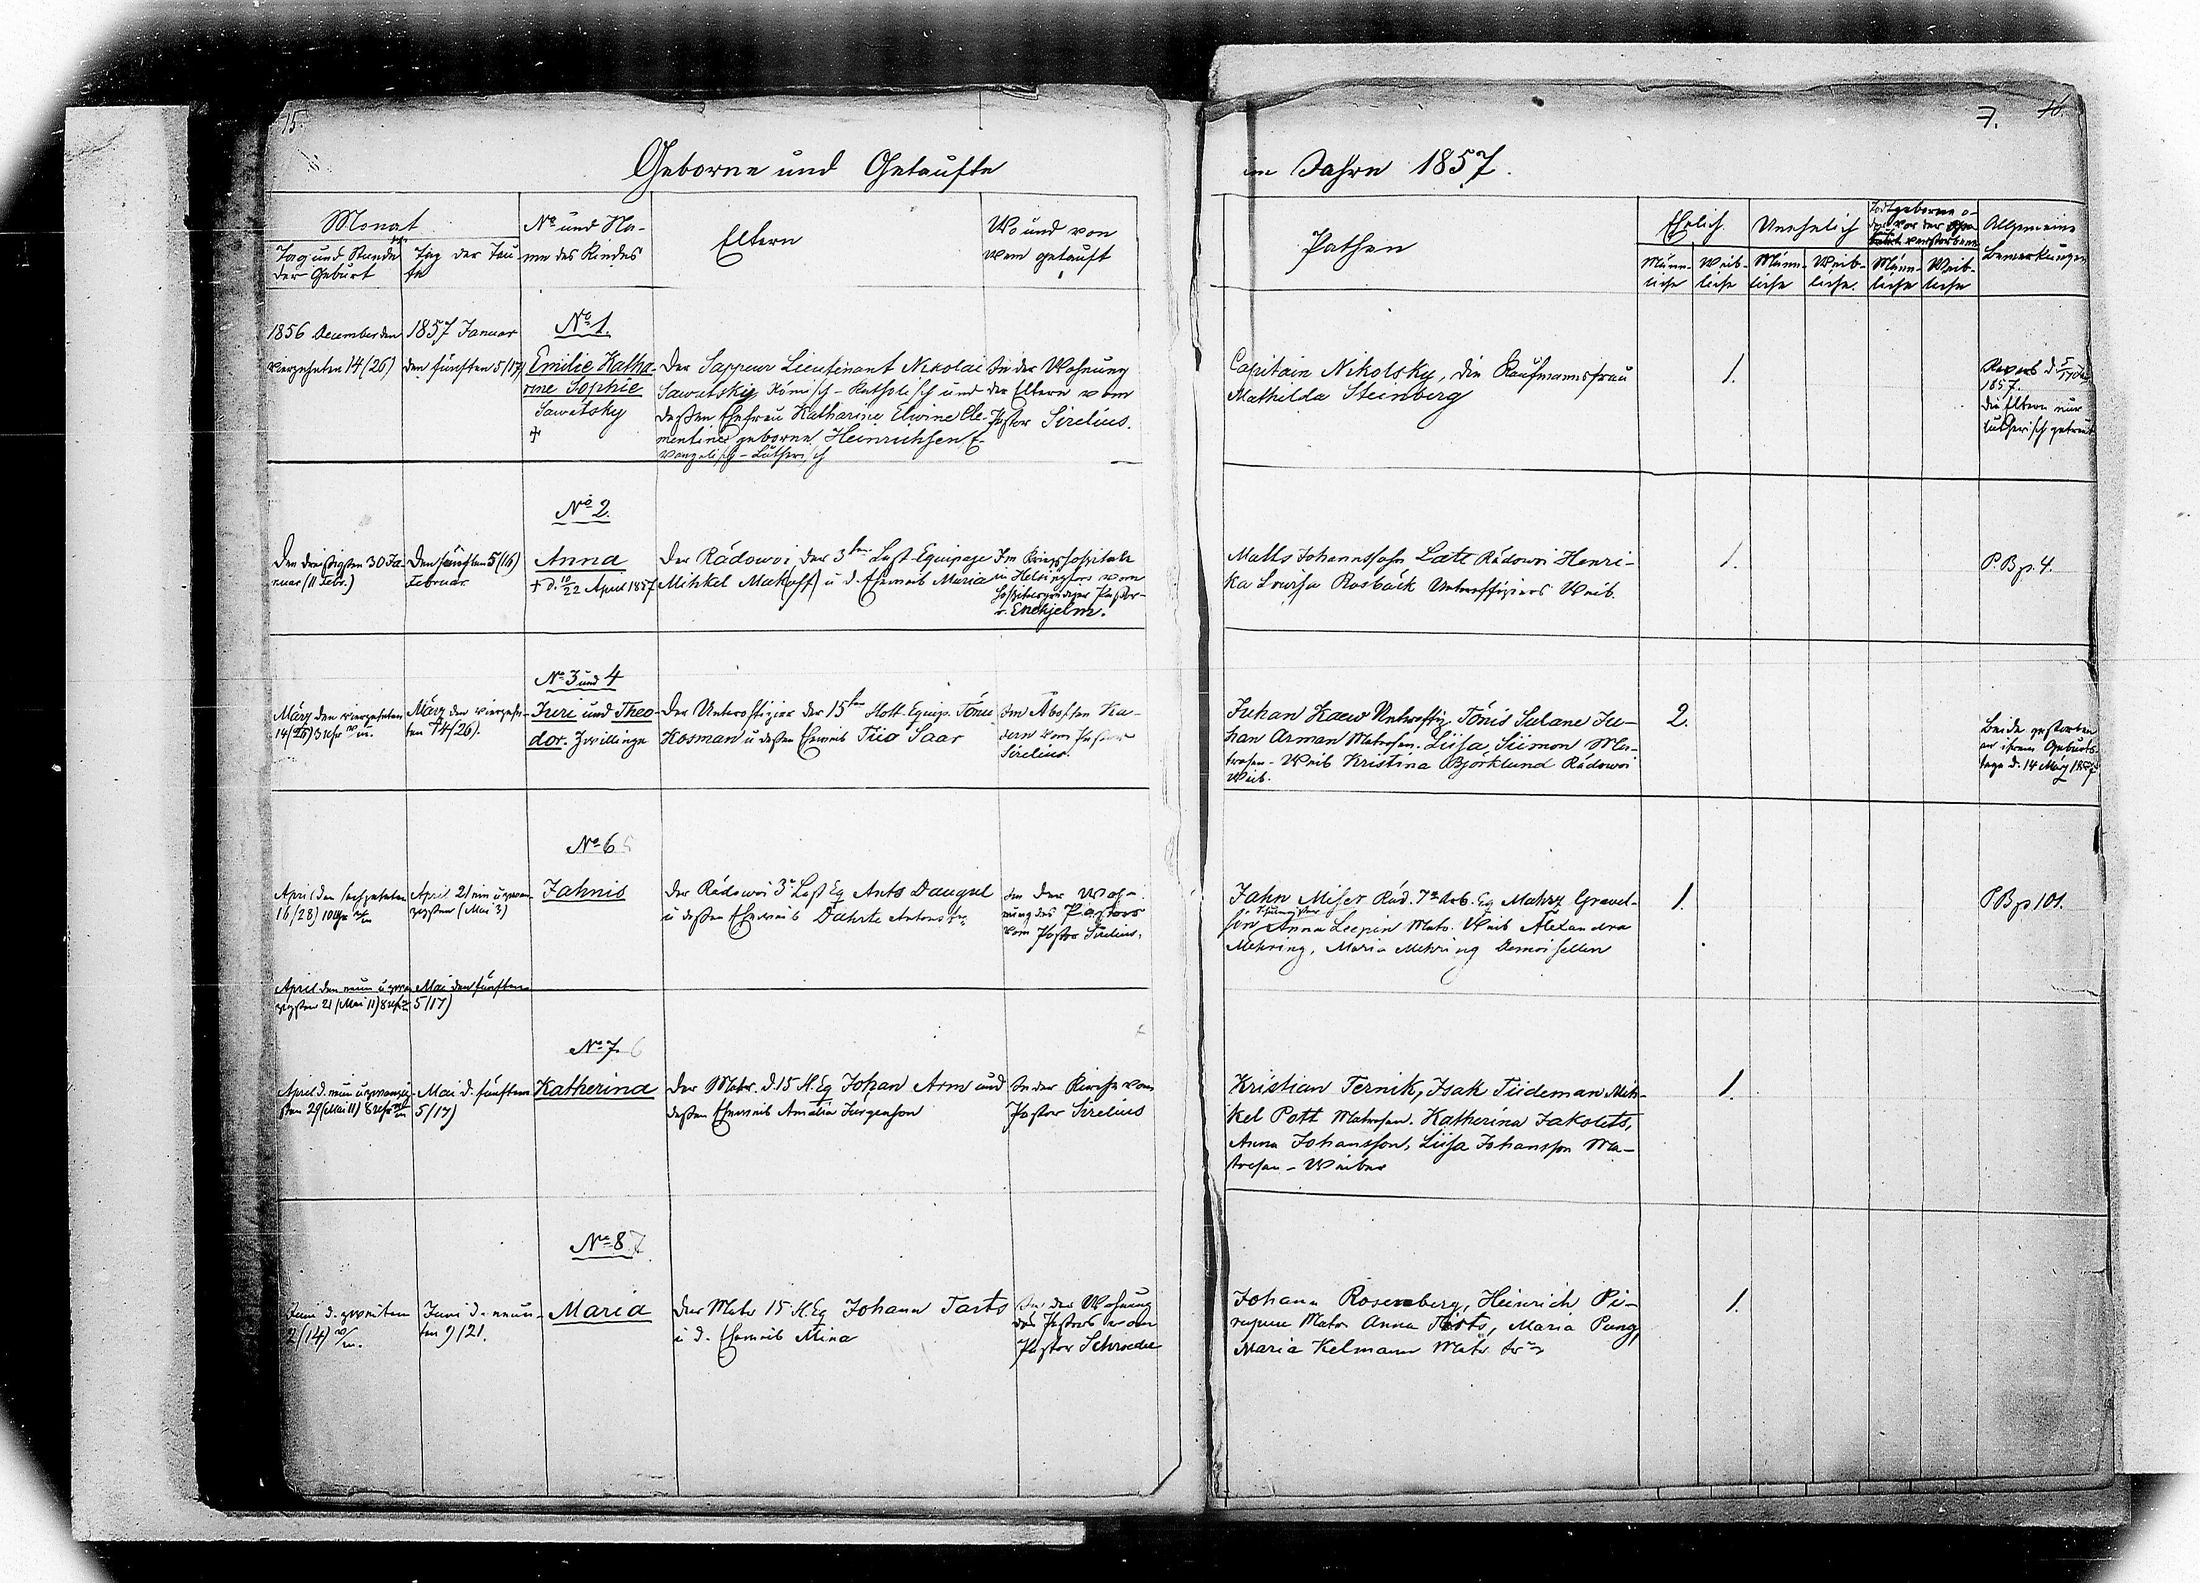 15.
7. 16.
Geborne und Getaufte
im Jahre 1857.
Monat
Tag und Stunde der Geburt
Tag der Taufe
No und Name des Kindes
Eltern
Wo und von wem getauft
Pathen
Ehelich
Unehelich
Todtgeborne o-
Allgemeine Bemerkungen
Männ-
liche
Weib-
liche
Männ-
liche
Weib-
liche.
Männ-
liche
Weib-
liche
1856 December den
vierzehnten 14 (26)
1857 Januar
den fünften 5/17
No 1.
Emilie Katha-
rine Sophie
Sawatsky
+
Der Sappeur Lieutenant Nikolai
Sawatsky Römisch-Katholisch und
dessen Ehefrau Katharine Elwine Cle-
mentine geborne Heinrichsen E-
vangelisch-Lutherisch
In der Wohnung
der Eltern vom
Pastor Sirelius.
Capitain Nikolsky, die Kaufmannsfrau
Mathilda Steinberg
1.
Revers d.
1857.
die Eltern nur
lutherisch getraut
No 2.
Den dreißigsten 30 Ja-
nuar (11 Febr.)
Den fünften 5 (16)
Februar
Anna
+ d. 10/22 April 1857
Der Rädowoi der 3ten Last-Equipage
Mihkel Makoff u d. Eheweib Maria
Im Kriegshospitale
in Helsingfors vom
Pastor
v. Enehjelm.
Matts Johannssohn Latt Rädowoi Henri-
ka Lowisa Rosbäck Unteroffiziers Weib.
1.
P. B p. 4.
No 3 und 4
März den vierzehnten
14 (26) 3 Uhr
März den vierzehn-
ten 14/26).
Juri und Theo-
dor. Zwillinge
Der Unteroffizier der 15ten Flott-Equip. Tönu
Kosman u dessen Eheweib Tiio Saar
Im Åboschen Ka-
dern vom Pastor
Sirelius.
Juhan Kaew Unteroffiz. Tönis Sulane Ju-
han Arman Matrosen. Liisa Siimon Ma-
trosen-Weib Kristina Björklund Rädowoi
Weib.
2.
Beide gestorben
an ihrem Geburts-
tage d. 14 März 1857
No 6
April den sechzehnten
16/28) 10 Uhr
April 21 ein u zwan-
zigsten (Mai 3)
Jahnis
Der Rädowoi 3ten Last Eq Ants Daugul
u dessen Eheweib Dahrte
In der Woh-
nung des Pastors
vom Pastor Sirelius.
Jahn Miser Räd. 7ten Arb. Eq Mahrz Gravel-
sin, Anna Leepin Matr. Weib Alexandra
Mehring, Maria Mehring Demoisellen
1.
P B p 101.
April den neun u zwan-
zigsten 21 (Mai 11) 8 Uhr
Mai den fünften
5/17)
No 7. 6
April d. neun u zwanzig-
sten 29 (Mai 11) 8 Uhr
Mai d. fünften
5/17)
Katherina
Der Matr. d. 15 Fl. Eq Johan Arm und
dessen Eheweib Amalia Jurgenson
In der Kirche vom
Pastor Sirelius
Kristian Ternik, Isak Tiideman Mih-
kel Pott Matrosen. Katherina Jakolets,
Anna Johansson, Liisa Johansson Ma-
trosen-Weiber
1.
No 8. 7
Juni d. zweiten
2/14)
Juni d. neun-
ten 9/21.
Maria
Der Matr 15 Fl. Eq Johann Tarts
u d. Eheweib Mina
In der Wohnung
des Pastors von
Pastor Schroeder
Johann Rosenberg, Heinrich Pi-
Matr. Anna Tarts, Maria Pung,
Maria Kelmann Matr.
1.